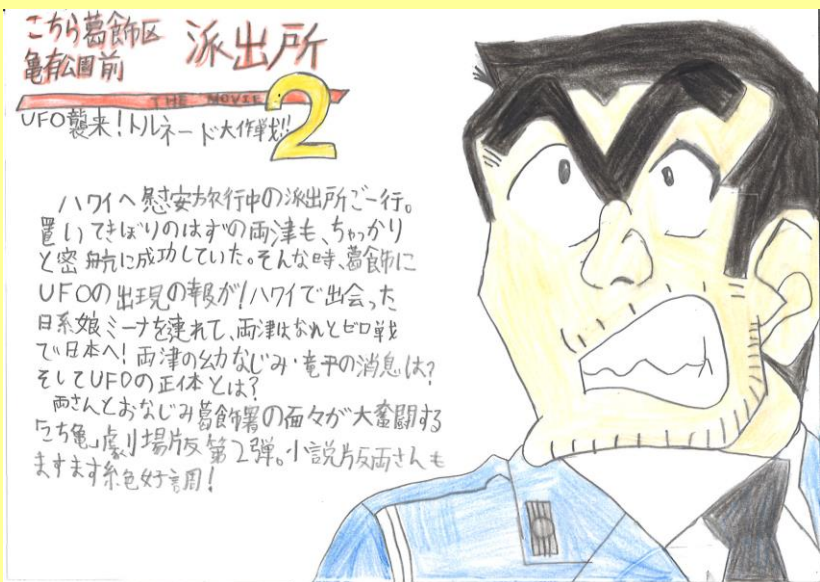 こちら葛飾区
亀有公園前
派出所
THE MOVIE
2
UFO襲来!トルネード大作戦!!
ハワイへ慰安旅行中の派出所ご一行。
置いてきぼりのはずの両津も、ちゃっかり
と密航に成功していた。そんな時、葛飾に
UFOの出現の報が!ハワイで出会った
日系娘ミーナを連れて、両津はなんとゼロ戦
で日本へ!両津の幼なじみ・竜平の消息は?
そしてUFOの正体とは?
両さんとおなじみ葛飾署の面々が大奮闘する
「こち亀」劇場版第2弾。小説版両さんも
ますます絶好調!